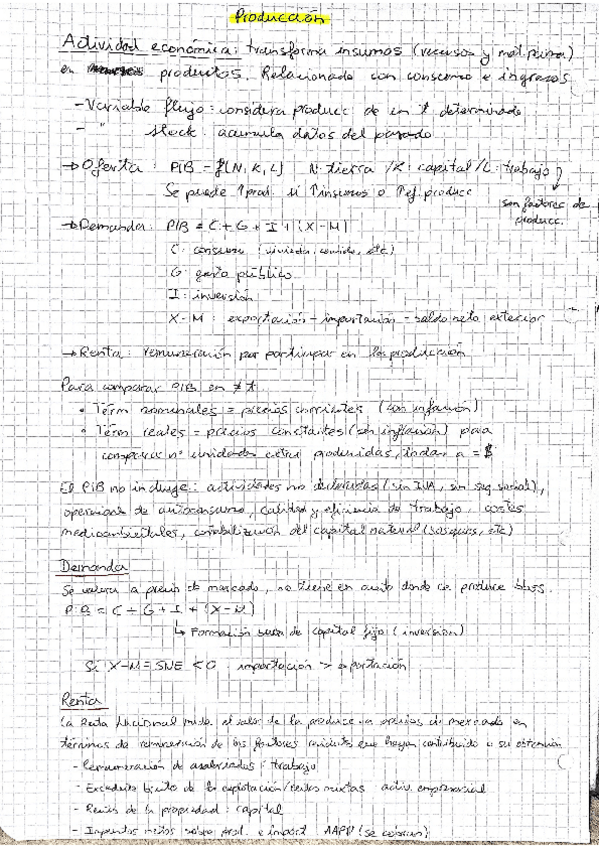 Producción
Actividad económica: transforma insumos (recursos y mat prima)
en productos. Relacionado con consumo e ingresos
- Variable flujo: considera producc de un t determinado
- " stock: acumula datos del pasado
→ Oferta: PIB = f(N, K, L) N: tierra / K: capital / L: trabajo
Se puede ↑prod. si ↑insumos o ↑ef. producc
son factores de
producc.
→ Demanda: PIB = C + G + I + (X-M)
C: consumo (vivienda, comida, etc)
G: gasto público
I: inversión
X-M: exportación - importación = saldo neto exterior
→ Renta: remuneración por participar en la producción
Para comparar PIB en ≠ t
• Térm nominales = precios corrientes (con inflación)
• Térm reales = precios constantes (sin inflación) para
comparar nº unidades extra producidas, todas a = $
El PIB no incluye: actividades no declaradas (sin IVA, sin seg. social),
operaciones de autoconsumo, calidad y eficiencia de trabajo, costes
medioambientales, contabilización del capital natural (bosques, etc)
Demanda
Se valora a precio de mercado, no tiene en cuenta donde se produce
PIB = C + G + I + (X-M)
↳ Formación bruta de capital fijo (inversión)
Si X-M = SNE < 0 importación > exportación
Renta
La Renta Nacional mide el valor de la producc a precios de mercado en
términos de remuneración de los factores residentes que hayan contribuido a su obtención
- Remuneración de asalariados: trabajo
- Excedente bruto de la explotación/rentas mixtas activ. empresarial
- Rentas de la propiedad: capital
- Impuestos netos sobre prod. e import AAPP (se cobran)